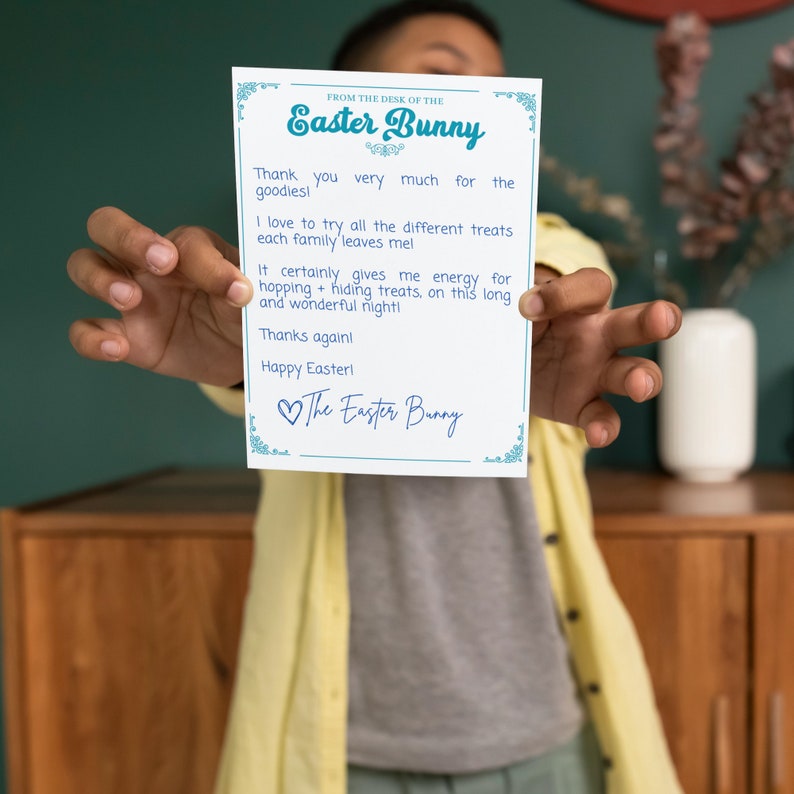 FROM THE DESK OF THE
Easter Bunny
Thank you very much for the
goodies!
I love to try all the different treats
each family leaves me!
It certainly gives me energy for
hopping + hiding treats, on this long
and wonderful night!
Thanks again!
Happy Easter!
The Easter Bunny